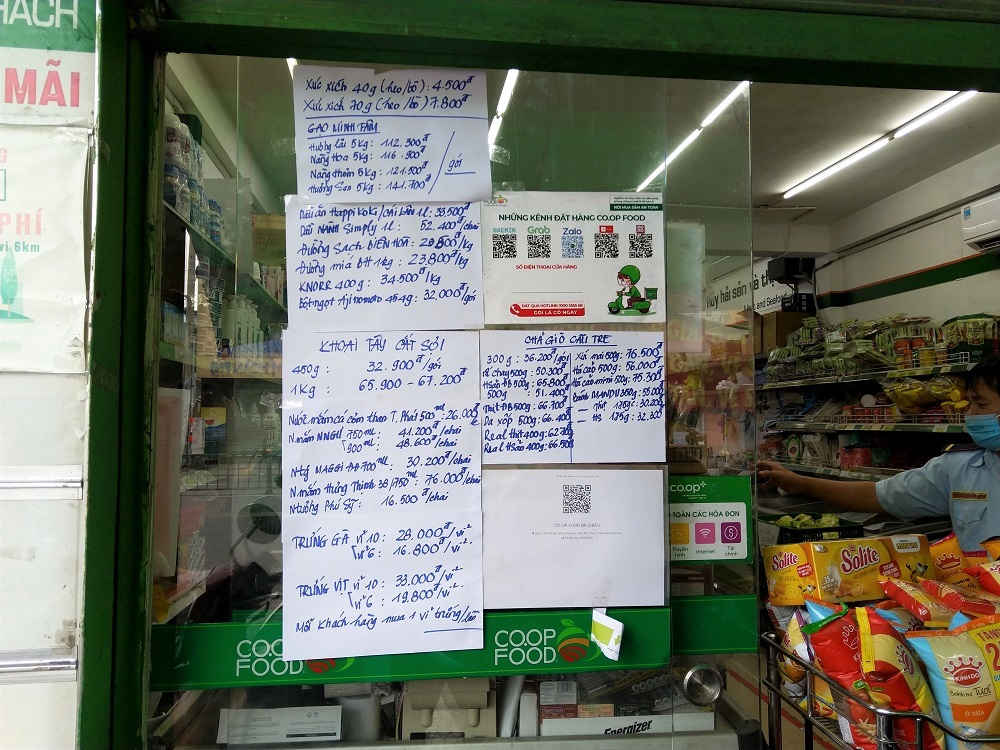 HÁCH
MÃI
PHÍ
vi 6km
Xúc xích 40g (heo/bò): 4.500đ
Xúc xích 70g (heo/bò) 7.800đ
GẠO MINH TÂM
Hương lài 5kg: 112.300đ
Nàng Hoa 5kg: 116.900đ
Nàng thơm 5kg: 121.500đ
Hương Sen 5kg: 141.700đ
/gói
Dầu ăn Happi Koki/Cái Lân 1l: 33.500đ
Dầu NÀNH Simply 1l: 52.400đ/chai
Đường Sạch BIÊN HOÀ: 20.800đ/kg
Đường mía BH 1kg: 23.800đ/kg
KNORR 400g: 34.500đ/kg
Bột ngọt Aji nomoto 454g: 32.000đ/gói
NHỮNG KÊNH ĐẶT HÀNG CO.OP FOOD
NƠI MUA SẮM AN TOÀN
BAEMIN Grab Zalo
SỐ ĐIỆN THOẠI CỬA HÀNG
ĐẶT QUA HOTLINE: 1900 5555 68
GỌI LÀ CÓ NGAY
KHOAI TÂY CẮT SỢI
450g: 32.900đ/gói
1Kg: 65.900 - 67.200đ
Nước mắm cá cơm than T. Phát 500ml: 26.000đ
N mắm NNGư 750ml: 41.200đ/chai
900ml: 48.600đ/chai
N tg MAGGI ĐĐ 700ml: 30.200đ/chai
N. mắm Hưng Thịnh 38/750ml: 76.000đ/chai
N tương Phú Sỹ: 16.500đ/chai
TRỨNG GÀ vỉ 10: 28.000đ/vỉ
vỉ 6: 16.800đ/vỉ
TRỨNG VỊT vỉ 10: 33.000đ/vỉ
vỉ 6: 19.800đ/vỉ
Mỗi khách hàng mua 1 vỉ trứng/lần
CHẢ GIÒ CẦU TRE
300g: 36.200đ/gói
rế chay 500g: 50.300đ
HSản ĐB 500g: 65.800đ
500g: 51.400đ
Thịt ĐB 500g: 66.700đ
Da xốp 500g: 66.400đ
Real thịt 400g: 62.700đ
Real HSản 400g: 66.500đ
Xíu mại 500g: 76.500đ
Há cảo 500g: 56.000đ
Há cảo mini 500g: 75.300đ
Bánh MANDU 350g: 55.000đ
Thịt 175g: 30.200đ
HS 175g: 32.300
CO.OP FOOD BÀ CHIỂU
co.op+
TOÁN CÁC HÓA ĐƠN
Truyền hình
Internet
Tài chính
hủy hải sản và thị
CO.OP FOOD
CO.OP FOOD
Energizer
Solite
Solite
KINH ĐÔ
Bánh mì Tươi
TẶNG